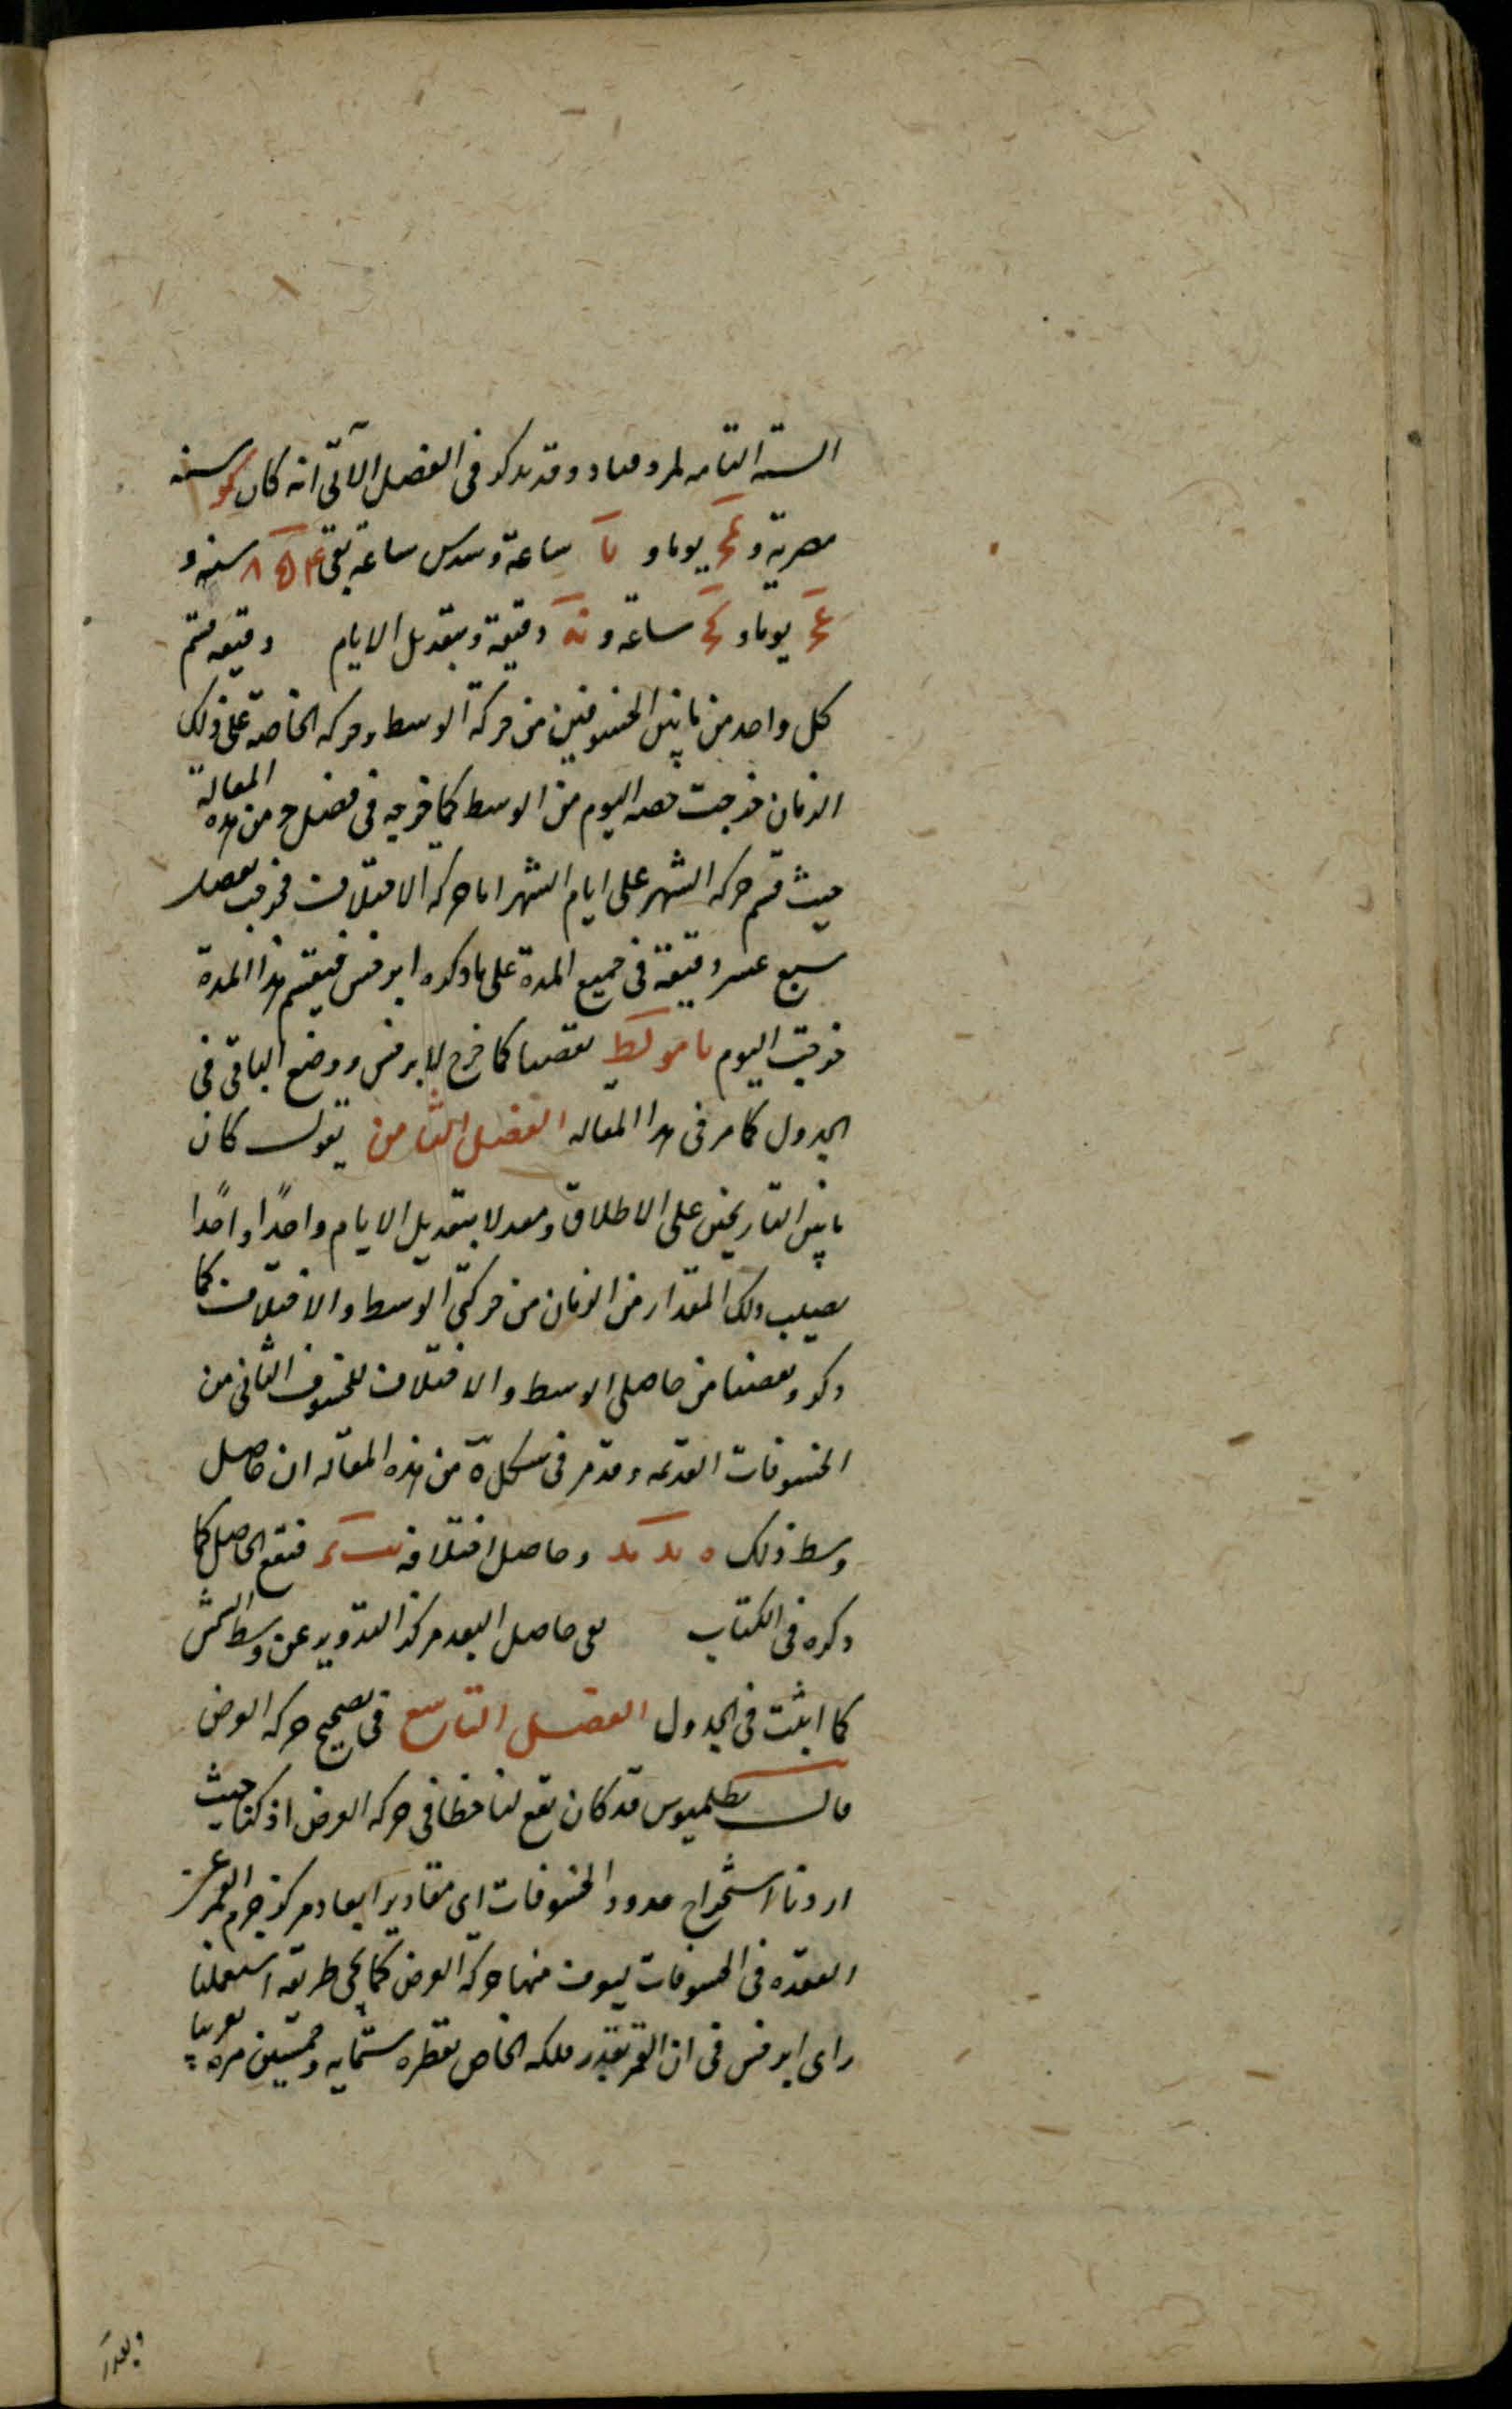 السنة التامه لمردوماد وقد يذكر فى الفصل الآتى انه كان كو سنه
مصرية و عج يوما و يا ساعة وسدس ساعة بقى ٨٥٤ سنة و
عج يوما و كج ساعة و نه دقيقة وبتعديل الايام دقيقه قسم
كل واحد من مابين الخسوفين من حركة الوسط وحركه الخاصه على ذلك
الزمان خرجت حصه اليوم من الوسط كما خرجه فى فصل ح من هذه المقالة
حيث قسم حركه الشهر على ايام الشهر اما حركه الاختلاف فخرجت
سبع عشر دقيقة فى جميع المدة على ما ذكره ابرخس فيقسم هذا المدة
خرجت اليوم يا مو لط نقصنا كما خرج لابرخس ووضع الباقى فى
الجدول كما مر فى هذا المقاله الفصل الثامن يقول كان
مابين التاريخين على الاطلاق ومعدلا بتعديل الايام واحدًا واحدًا
يصيب ذلك المقدار من الزمان من حركتى الوسط والاختلاف كما
ذكر ونقصنا من حاصلى الوسط والاختلاف للخسوف الثانى من
الخسوفات القديمه وقد مر فى شكل ه من هذه المقاله ان حاصل
وسط ذلك ه يد مد وحاصل اختلافه فيقع الحاصل كما
ذكره فى الكتاب بقى حاصل البعد مركز التدوير عن وسط الشمس
كما اثبت فى الجدول الفصل التاسع فى تصحيح حركه العرض
قال بطلميوس قد كان يقع لنا خطأ فى حركه العرض اذ كنا حيث
اردنا استخراج حدود الخسوفات اى مقادير ابعاد مركز جرم القمر عن
العقده فى الخسوفات ليعرف منها حركة العرض كما يجى طريقه استعملنا
راى ابرخس فى ان القمر يقدر فلكه الخاص بقطره ستمايه وخمسين مره تقريبا
وبعدا